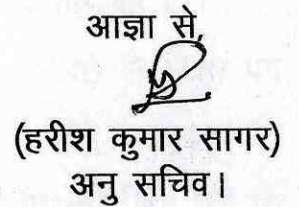 आज्ञा से,
(हरीश कुमार सागर)
अनु सचिव।